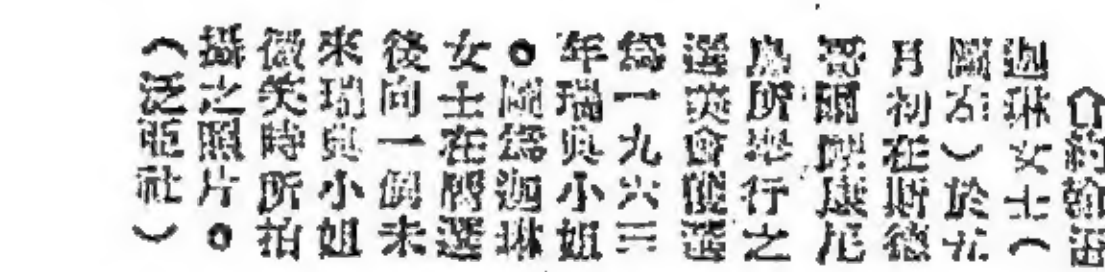 ⇧約翰遜
迦琳女士（
圖左）於五
月初在斯德
哥爾摩康尼
島所舉行之
選美會獲選
為一九六三
年瑞典小姐
。圖為迦琳
女士在膺選
後向一個未
來瑞典小姐
微笑時所拍
攝之照片。
（泛亞社）